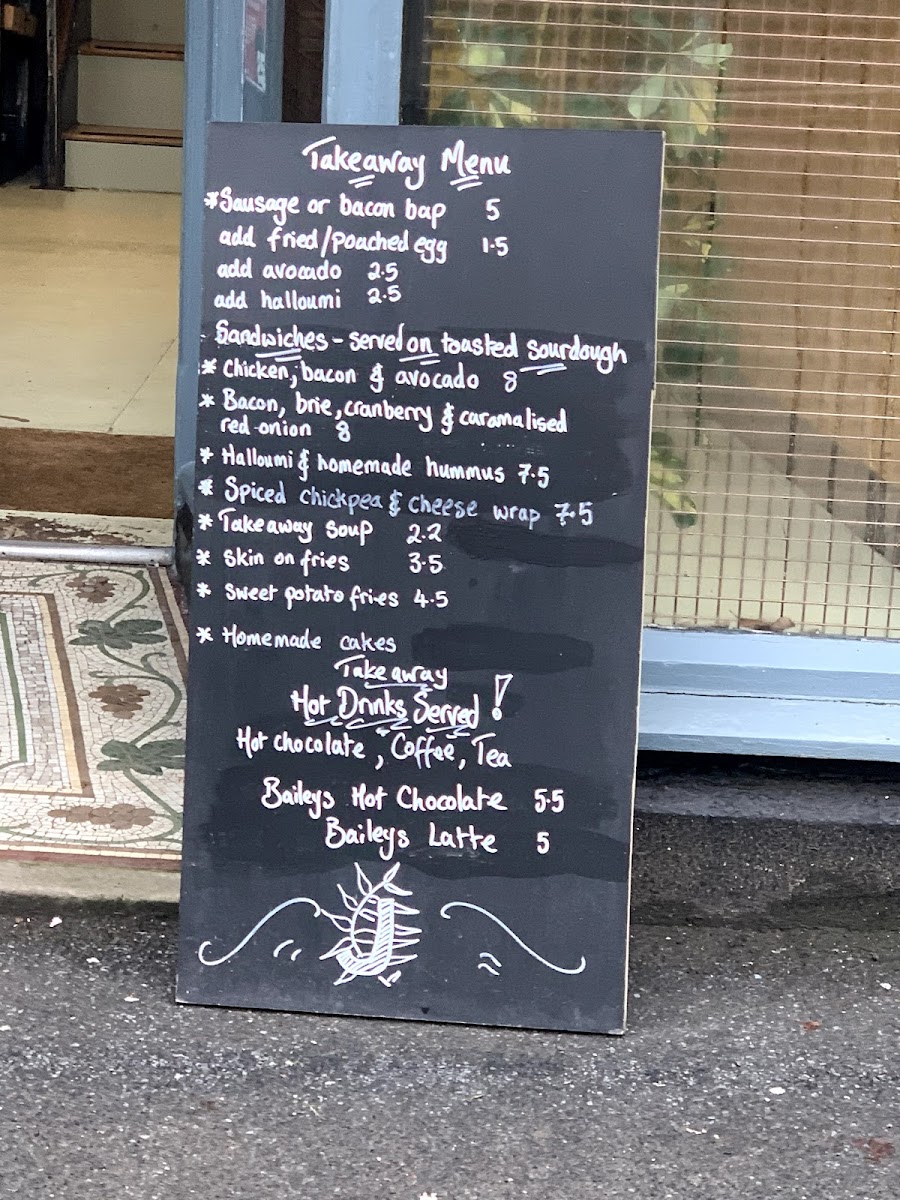 Takeaway Menu
*Sausage or bacon bap 5
add fried/poached egg 1.5
add avocado 2.5
add halloumi 2.5
Sandwiches - served on toasted sourdough
* Chicken, bacon & avocado 8
* Bacon, brie, cranberry & caramalised
red onion 8
* Halloumi & homemade hummus 7.5
* Spiced chickpea & cheese wrap 7.5
* Takeaway soup 2.2
* Skin on fries 3.5
* Sweet potato fries 4.5
* Homemade cakes
Takeaway
Hot Drinks Served!
Hot chocolate, Coffee, Tea
Baileys Hot Chocolate 5.5
Baileys Latte 5
J